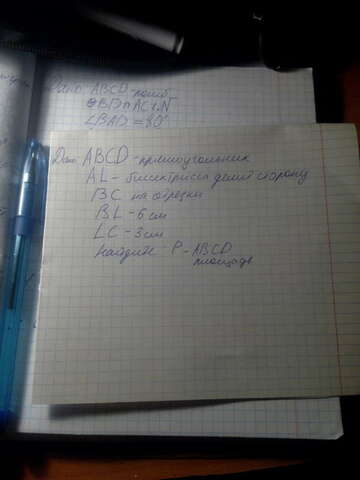 Дано ABCD - ромб
BD ∩ AC в т. N
∠BAD = 80°
Дано ABCD - прямоугольник
AL - биссектрисса делит сторону
BC на отрезки
BL - 6 см
LC - 3 см
найдите P - ABCD
площадь